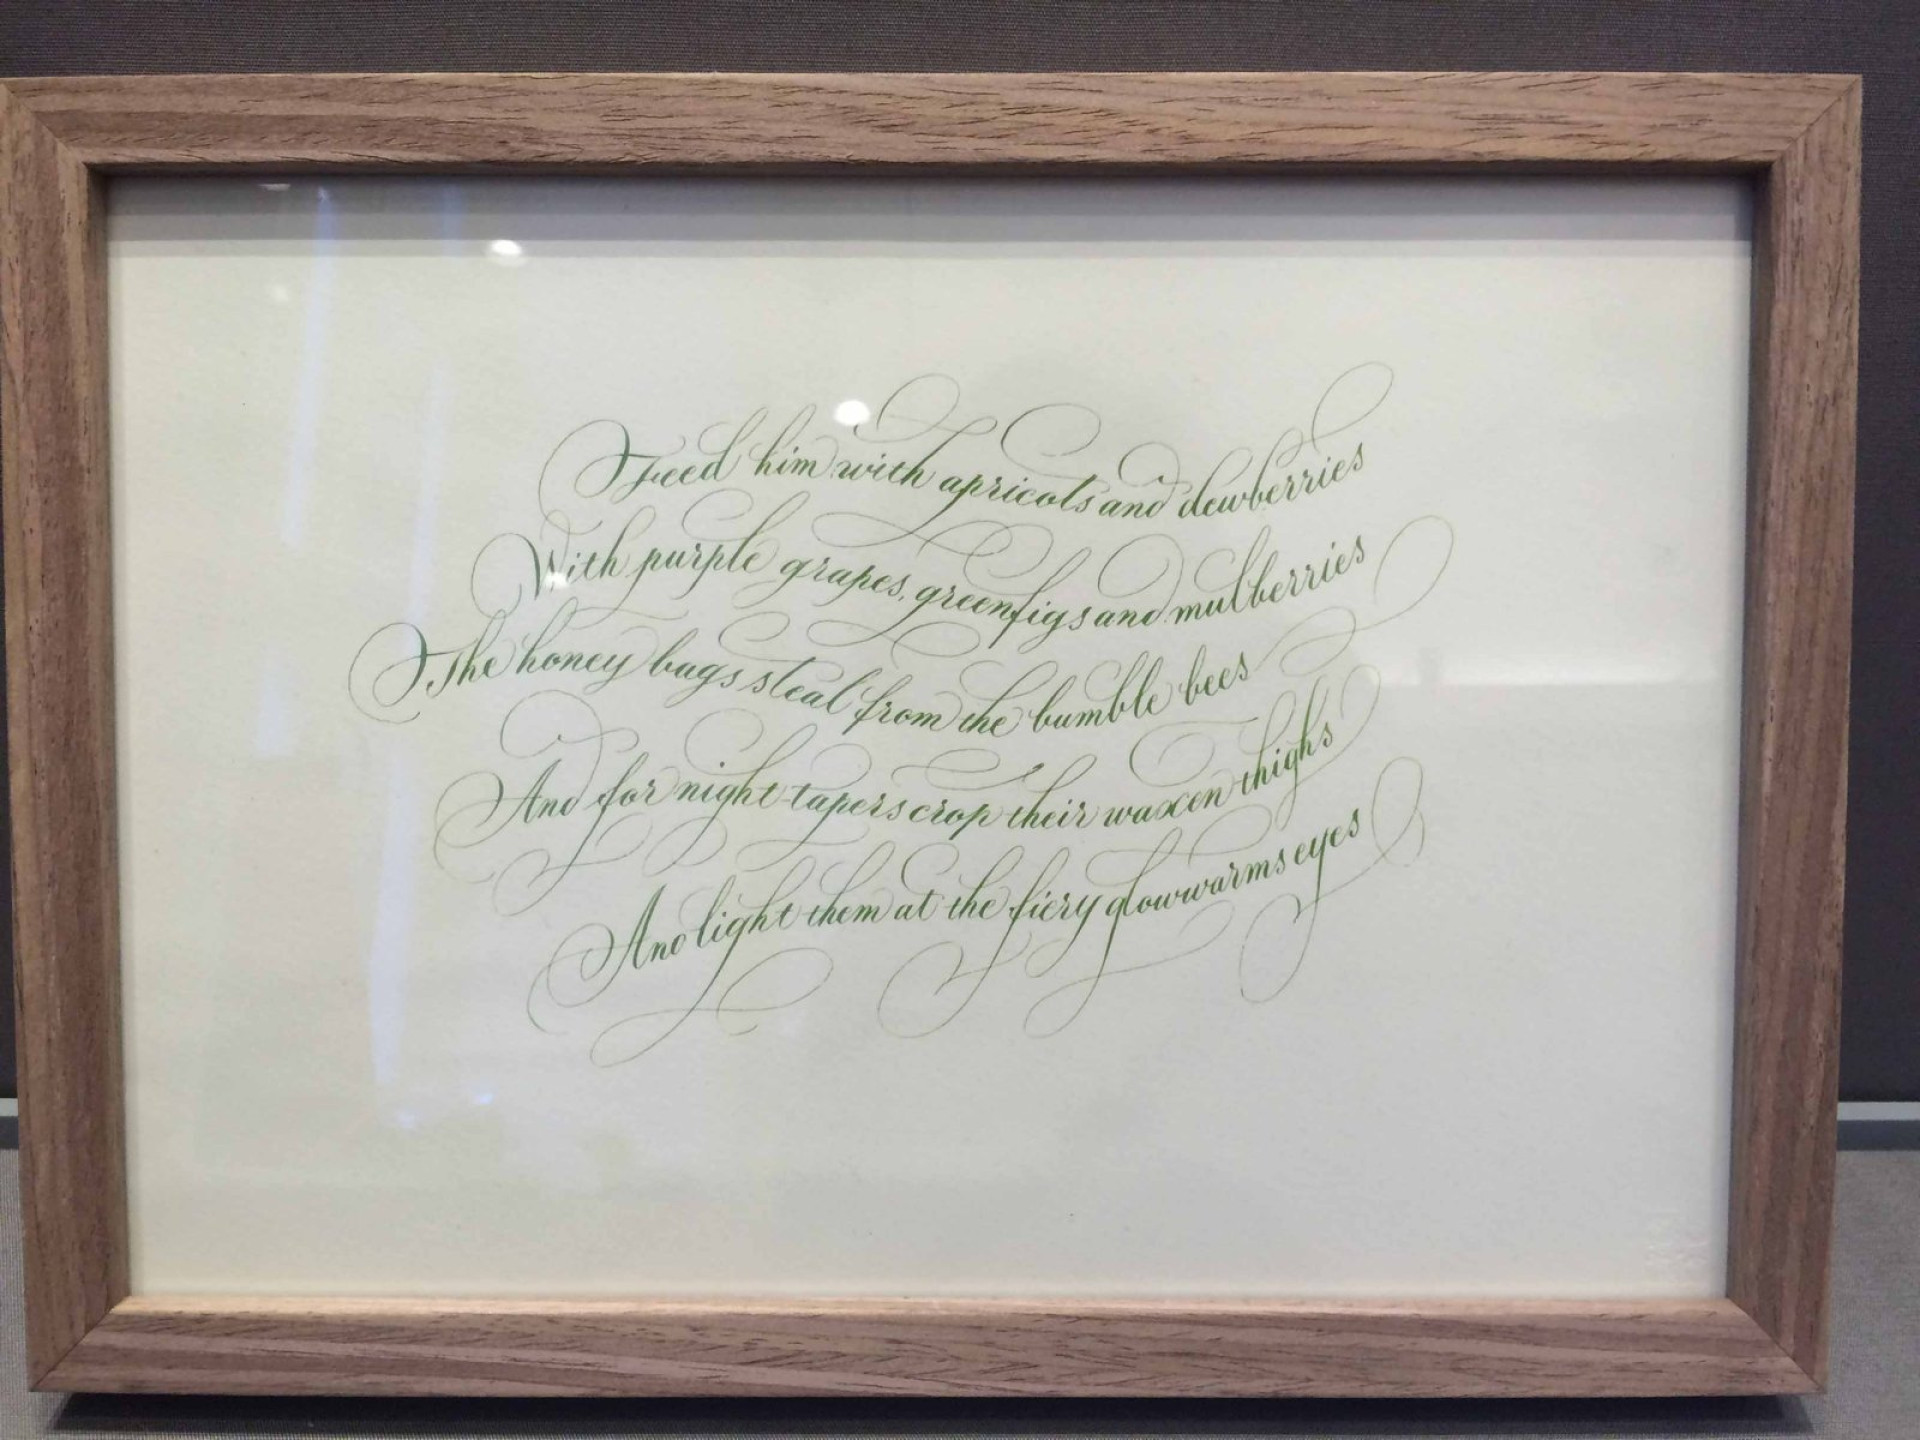 Feed him with apricots and dewberries
With purple grapes, green figs and mulberries
The honey bags steal from the bumble bees
And for night tapers crop their waxen thighs
And light them at the fiery glowwarms eyes